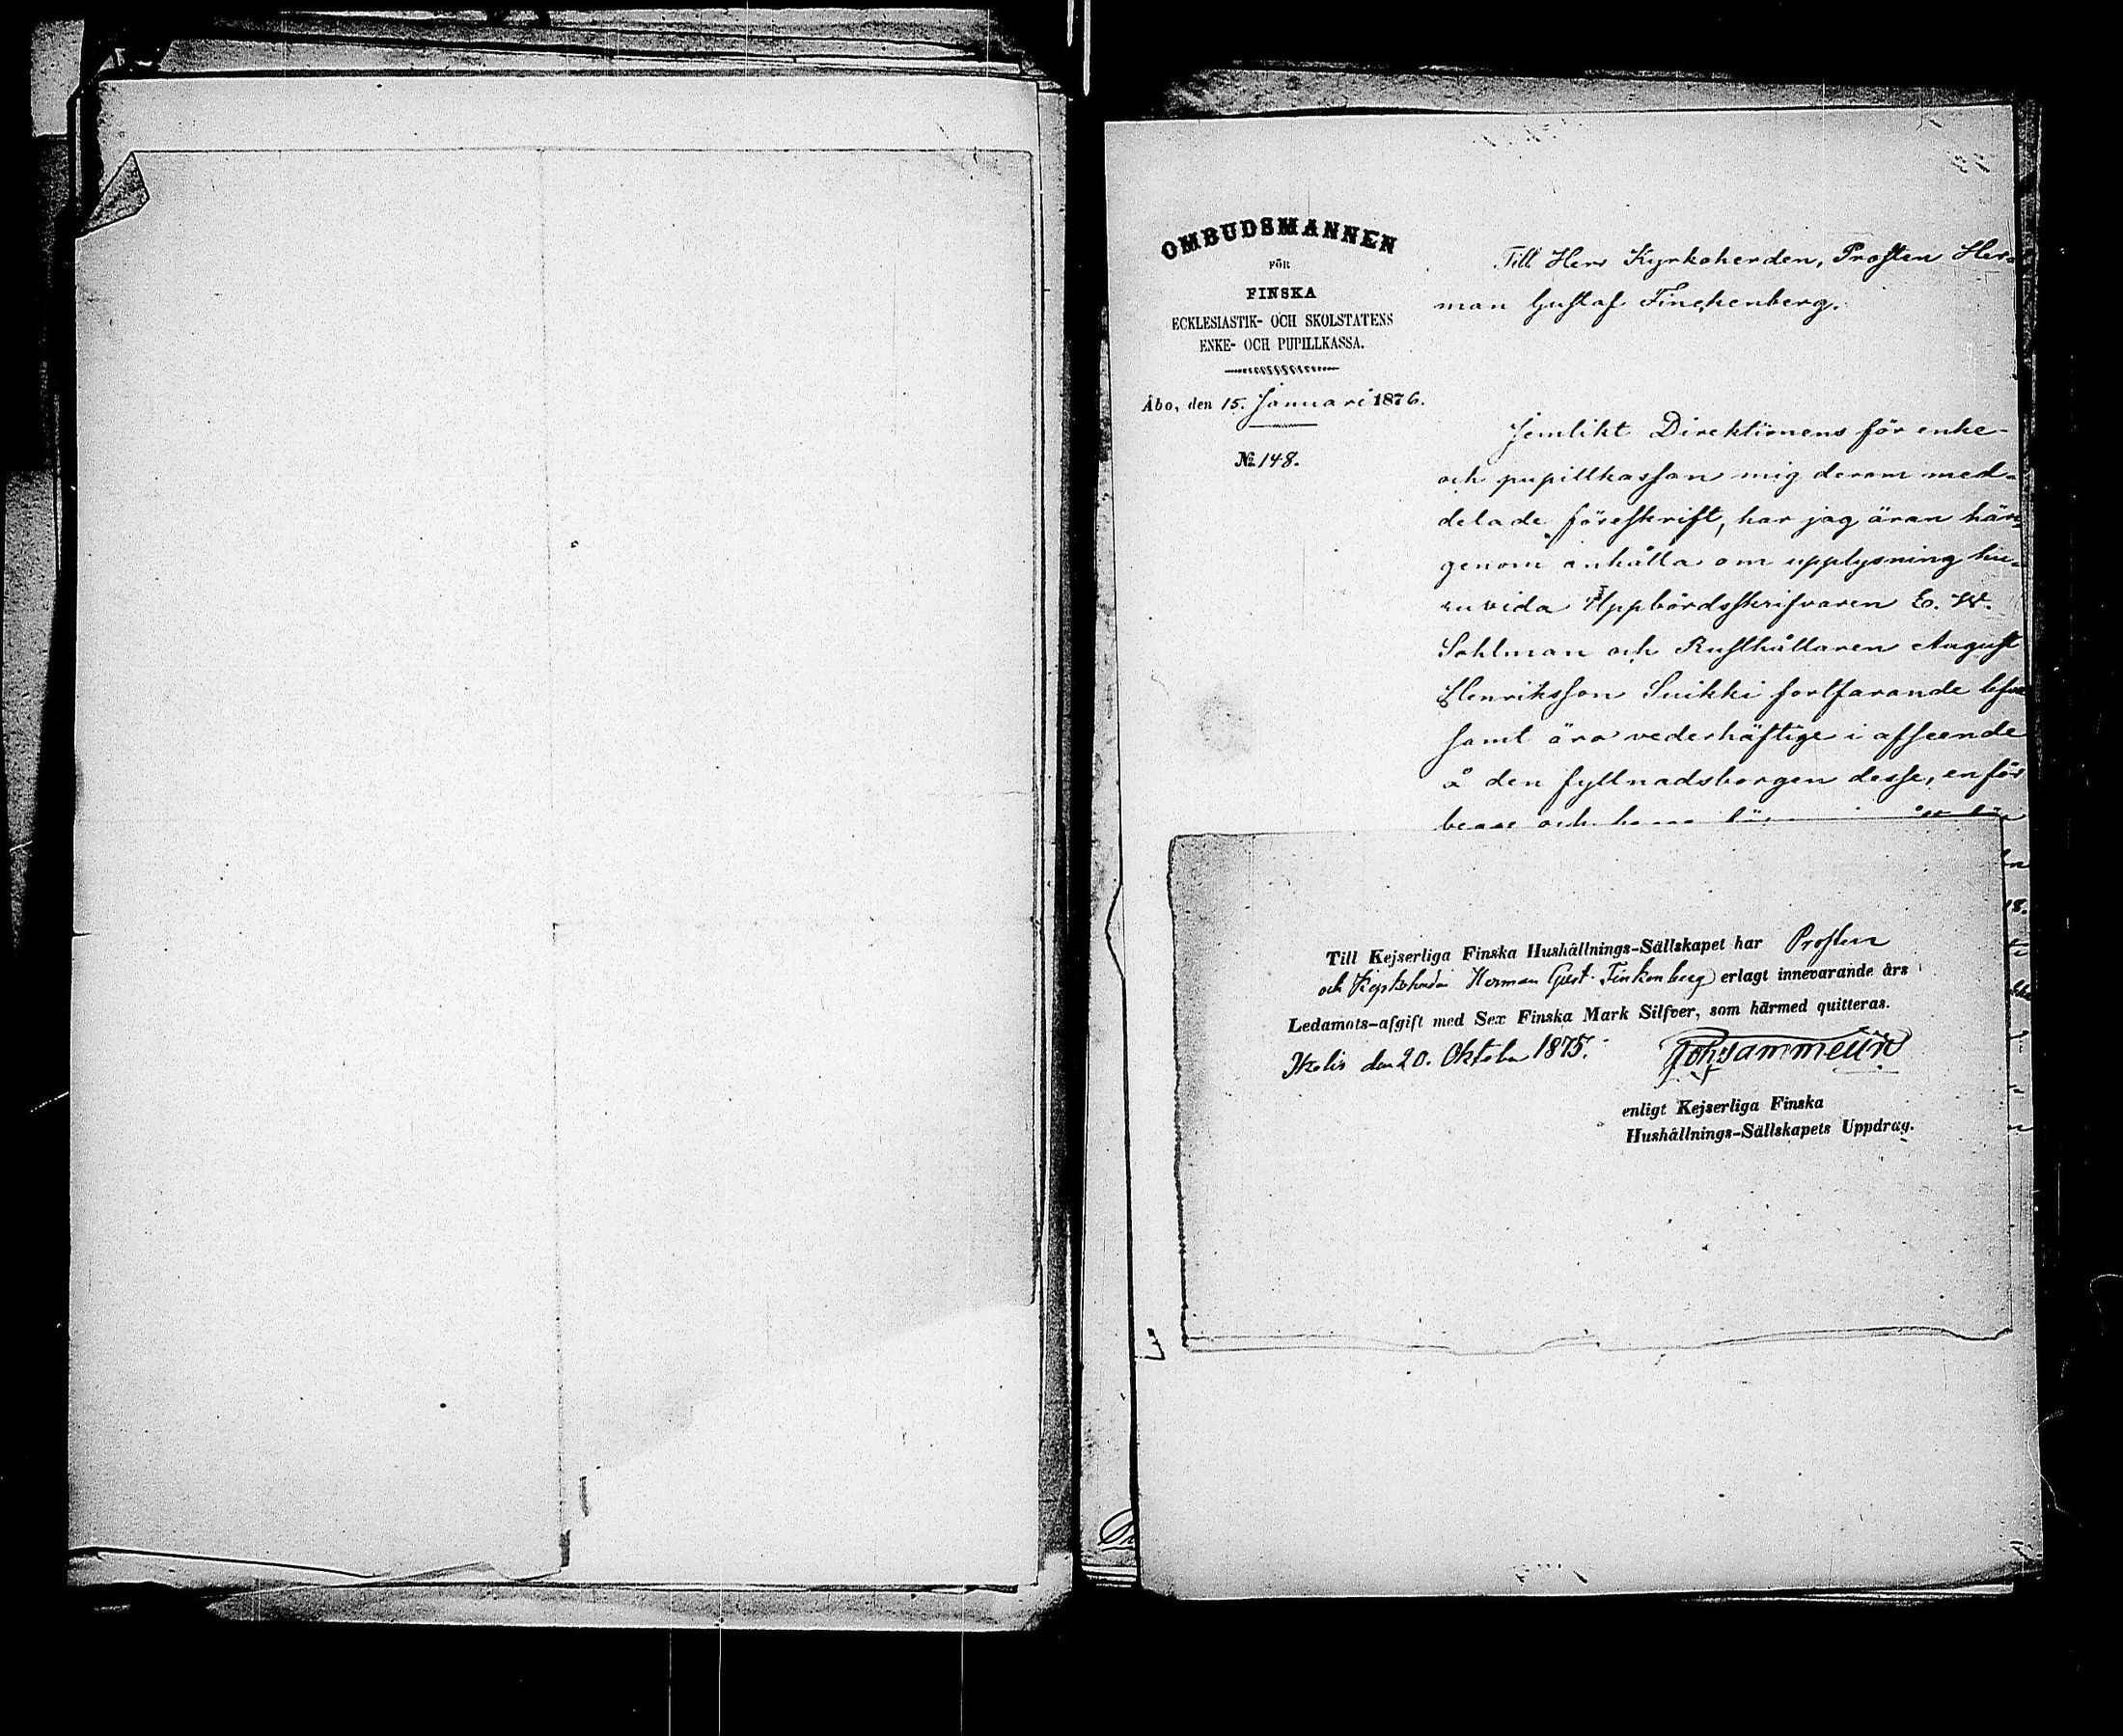 OMBUDSMANNEN
FÖR
FINSKA
ECKLESIASTIK- OCH SKOLSTATENS
ENKE- OCH PUPILLKASSA.
Åbo, den 15. Januari 1876.
№ 148.
Till Herr Kyrkoherden, Prosten Her-
man Gustaf Finckenberg.
Jemlikt Direktionens för enke-
och pupillkassan mig derom med-
delade föreskrift, har jag äran här-
genom anhålla om upplysning hu-
ruvida Uppbördsskrifvaren E. W.
Sohlman och Rusthållaren August
Henriksson Suikki fortfarande lefva
samt äro vederhäftige i afseende
å den fyllnadsborgen desse, enför
och
Till Kejserliga Finska Hushållnings-Sällskapet har Prosten
och Kyrkoherden Herman Gust. Finkenberg erlagt innevarande års
Ledamots-afgift med Sex Finska Mark Silfver, som härmed quitteras.
den 20. Oktober 1875.
enligt Kejserliga Finska
Hushållnings-Sällskapets Uppdrag.